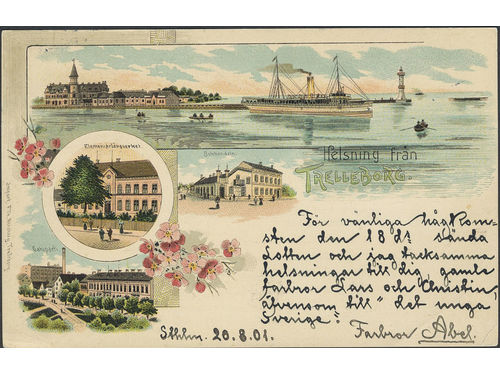 Helsning från
TRELLEBORG.
För vänliga hågkom-
sten den 18 ds sända
Lotten och jag tacksamma
helsningar till dig, gamle
farbror Lars och Christin
äfvensom till "det unga
Sverige".
Farbror Abel.
Sthlm. 20.8.01.